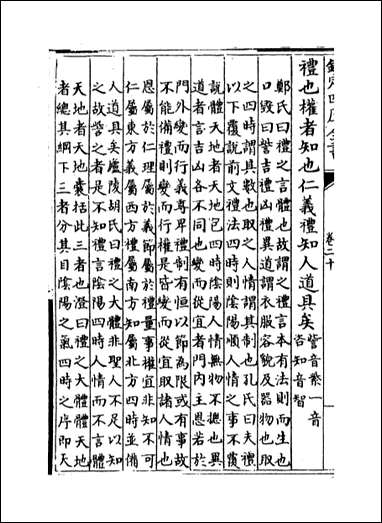 欽定四庫全書 卷三十
禮也權者知也仁義禮知人道具矣訾音紫一音呰知音智
鄭氏曰禮之言體也故謂之禮言本有法則而生也
口毀曰訾吉禮凶禮異道謂衣服容貌及器物也取
之四時謂其數也取之人情謂其制也孔氏曰夫禮
以下覆說前文禮法四時則陰陽順人情之事不覆
說體天地者天地包四時陰陽人情無物不總也異
道者言吉凶各不同也變而從宜者門內主恩若於
門外變而行義尊卑禮制有恒以節為限或有事故
不能備禮則變而行權是皆變而從宜取諸人情也
恩屬於仁理屬於義節屬於禮量事權宜非知不可
仁屬東方義屬西方禮屬南方知屬北方四時並備
人道具矣廬陵胡氏曰禮之大體非聖人不足以知
之故訾之者是不知禮言陰陽四時人情而不言體
天地者天地囊括此三者也澄曰禮之大體體天地
者總其綱下三者分其目陰陽之氣四時之序即天